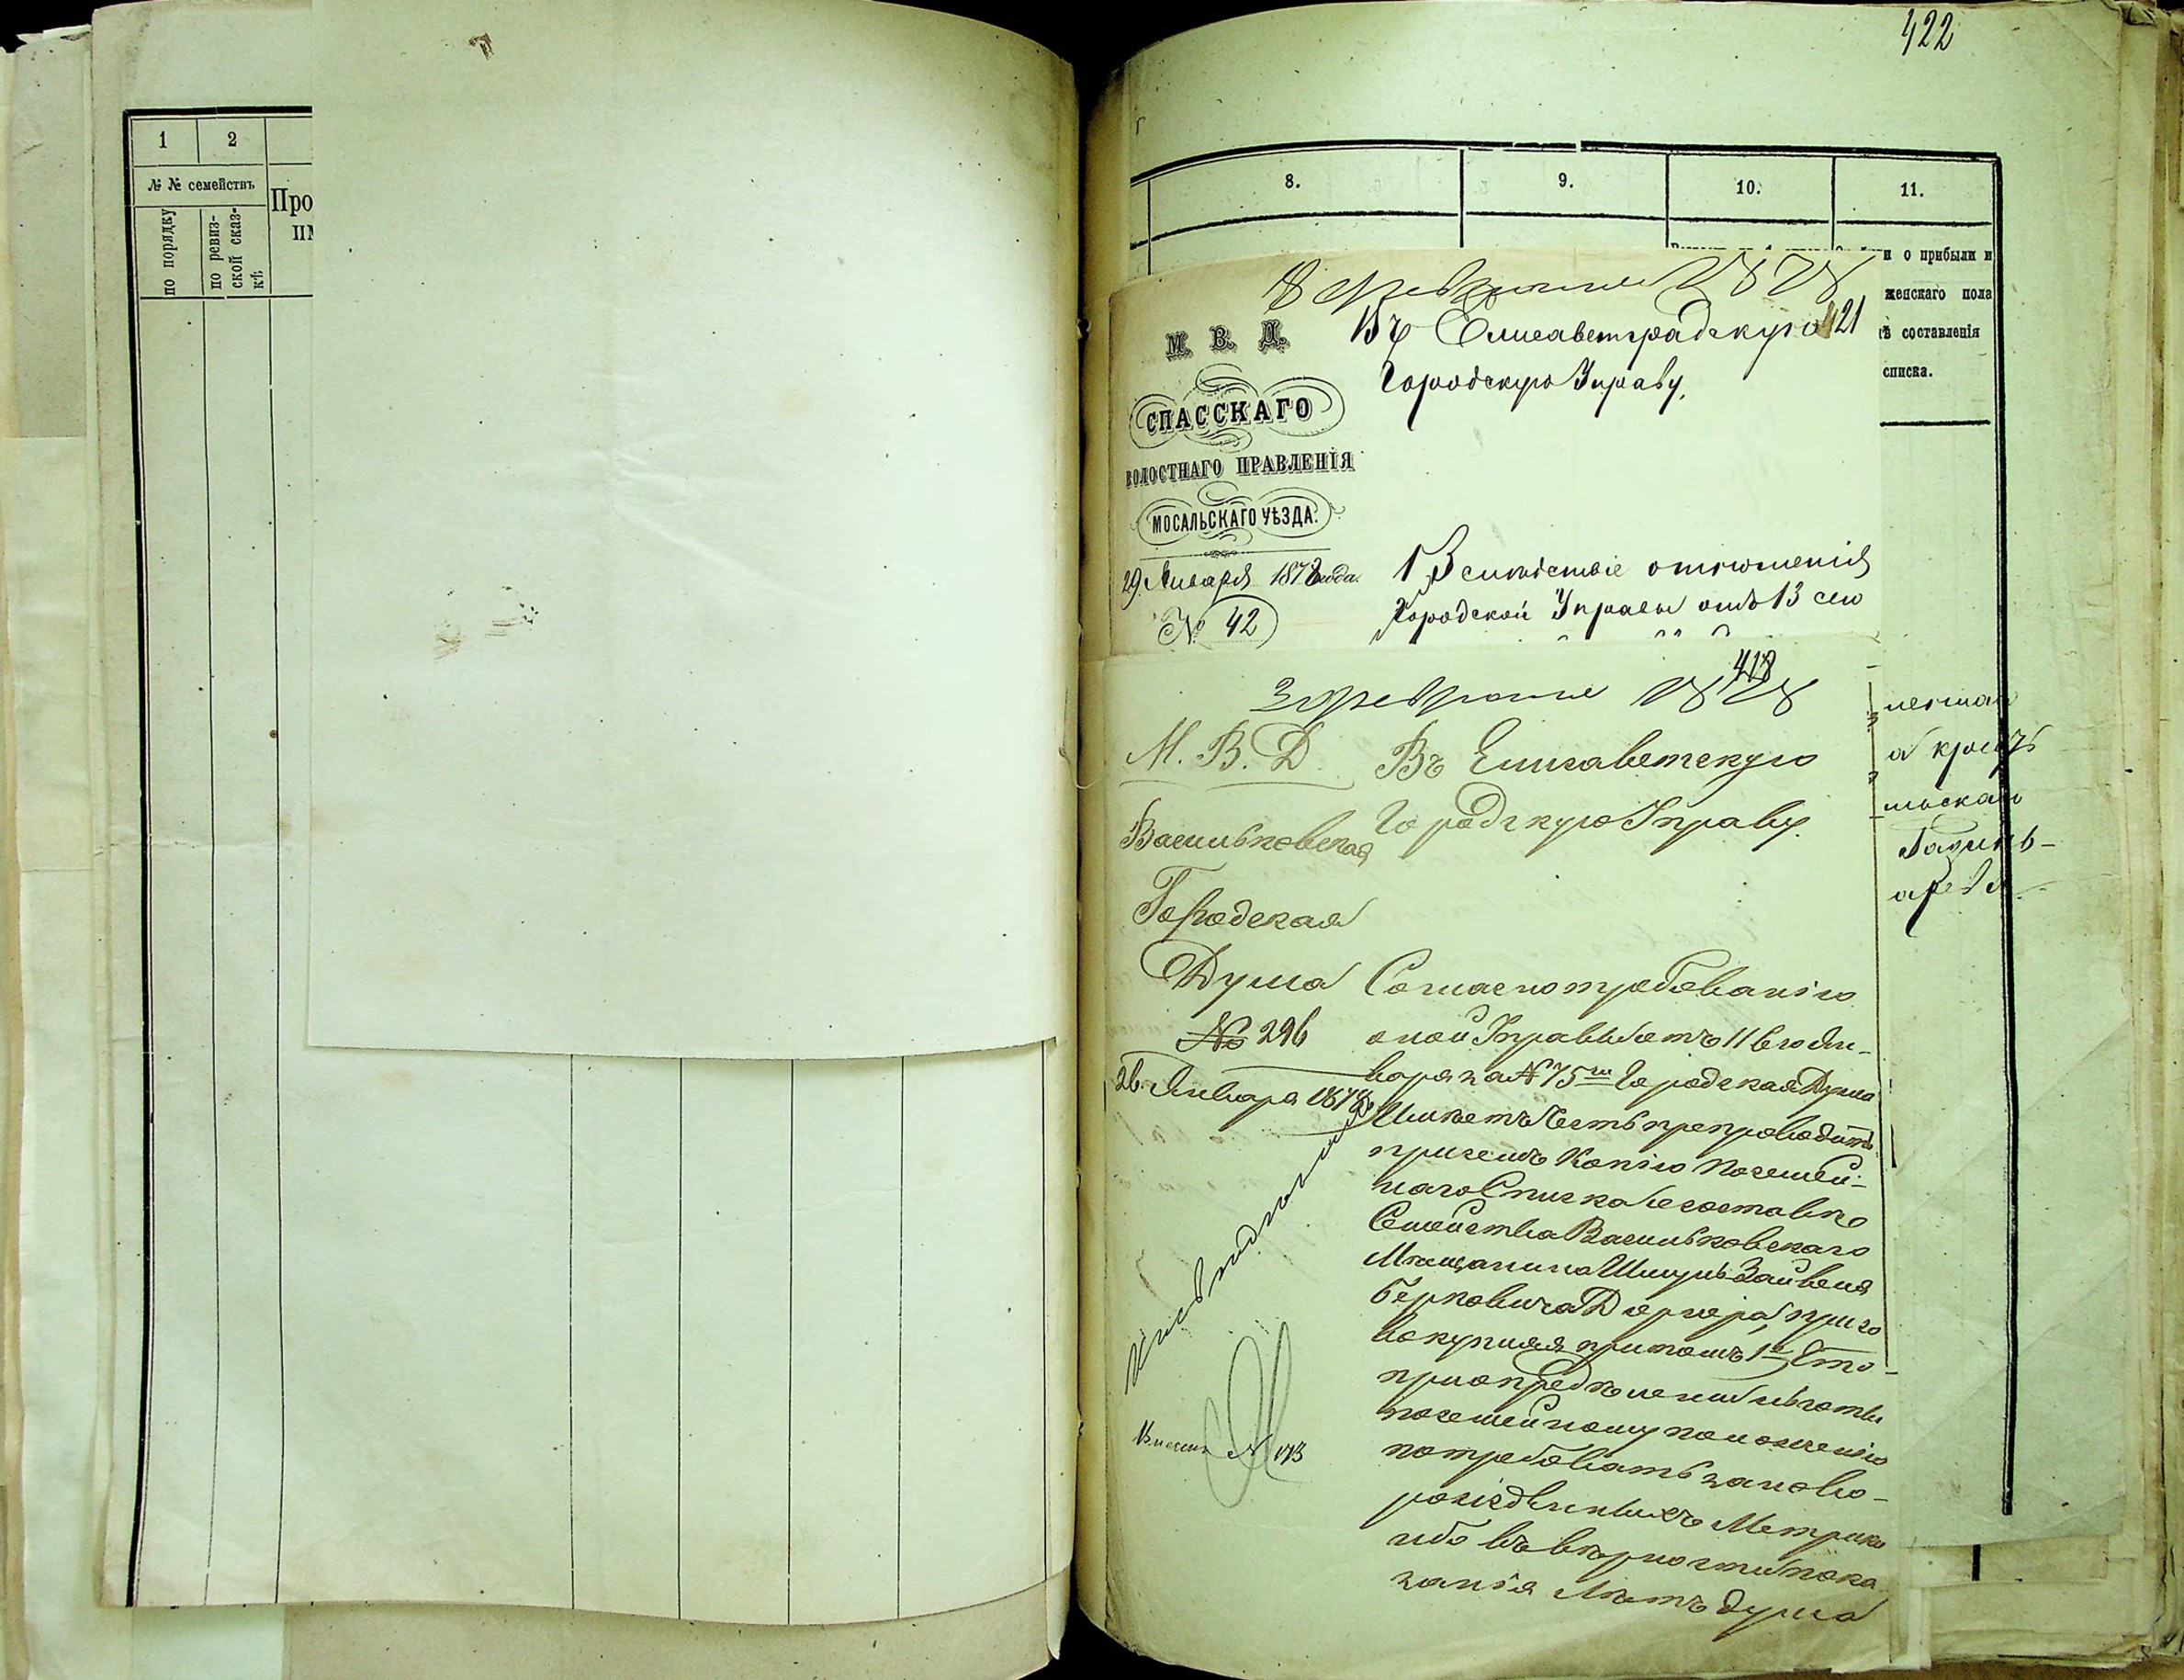 1
2
№ № семействъ
по порядку
по ревиз-
ской сказ-
кѣ
Про
422
8.
9.
10.
11.
и о прибыли и
женскаго пола
составленія
списка.
8 февраля 1878
421
М. В. Д.
СПАССКАГО
ВОЛОСТНАГО ПРАВЛЕНІЯ
МОСАЛЬСКАГО УѢЗДА.
29 Января 1878 года.
№ 42
Въ Елисаветградскую
Городскую Управу.
Вслѣдствіе отношенія
Городской Управы отъ 13 сего
418
3 февраля 1878
М. В. Д.
Васильковская
Городская
Дума
№ 296
26 Января 1878
Въ Елисаветскую
Городскую Управу.
Согласно требованію
оной Управы отъ 11 сего Ян-
варя за № 75 Городская Дума
Имѣетъ честь препроводить
при семъ Копію Посемей-
наго Списка о составѣ
Семейства Васильковскаго
Мѣщанина Шмуль Зайвеля
Берковича при со
вокупляя притомъ что
при опредѣленіи льготы
посемейному положенію
потребовать за ново-
рожденныхъ Метрики
ибо въ вѣрности пока
занія Лѣтъ дума